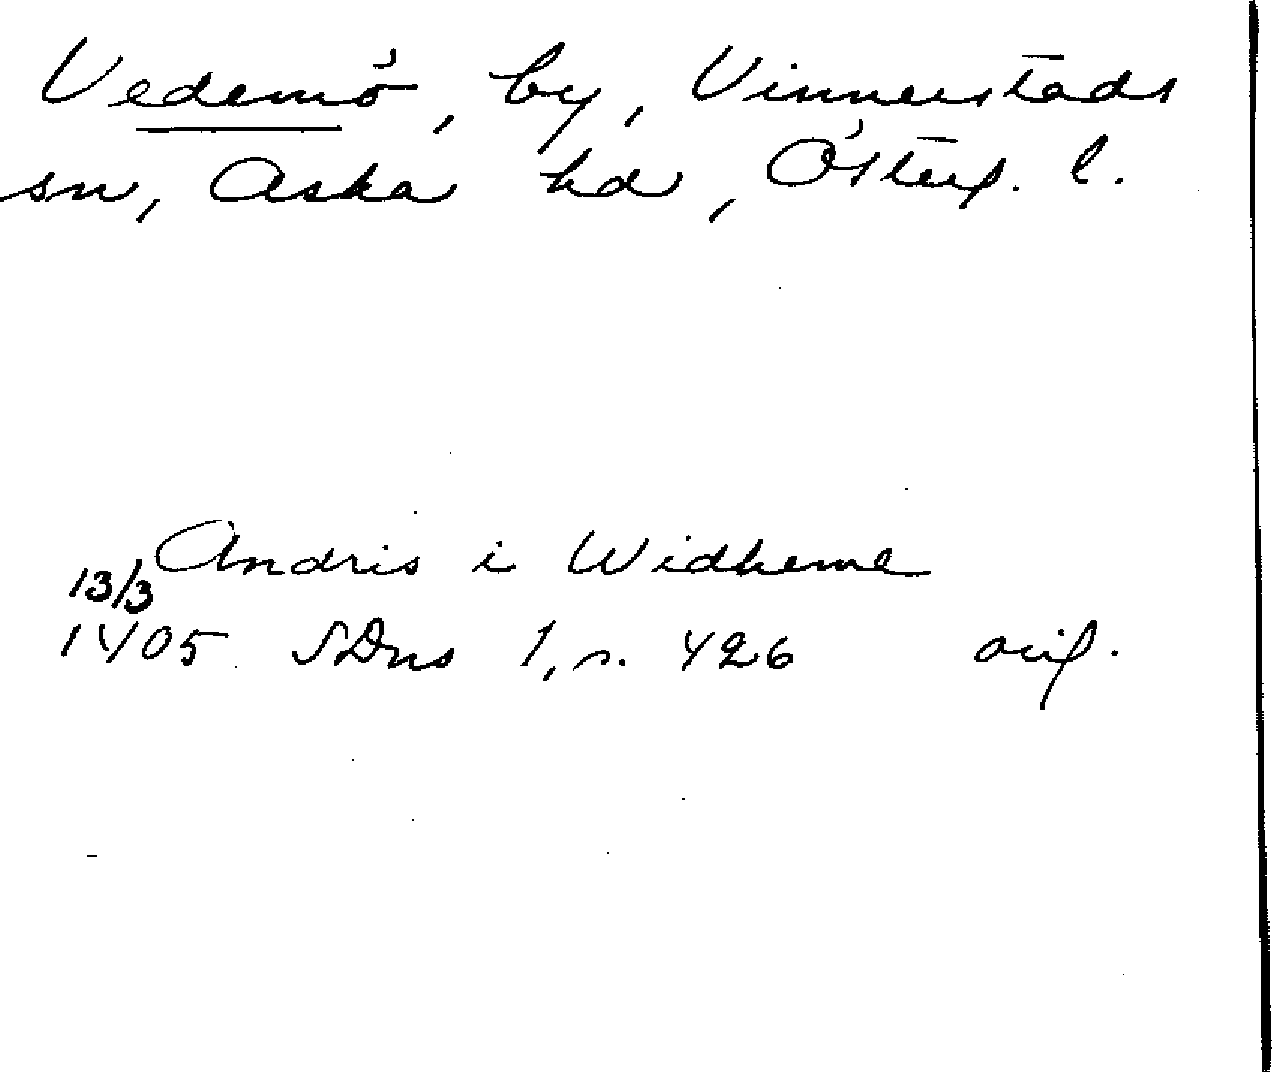 Vedemö, by, Vinnerstads
sn, Aska hd, Österg. l.
Andris i Widheme
13/3
1405 SDns 1, s. 426 orig.